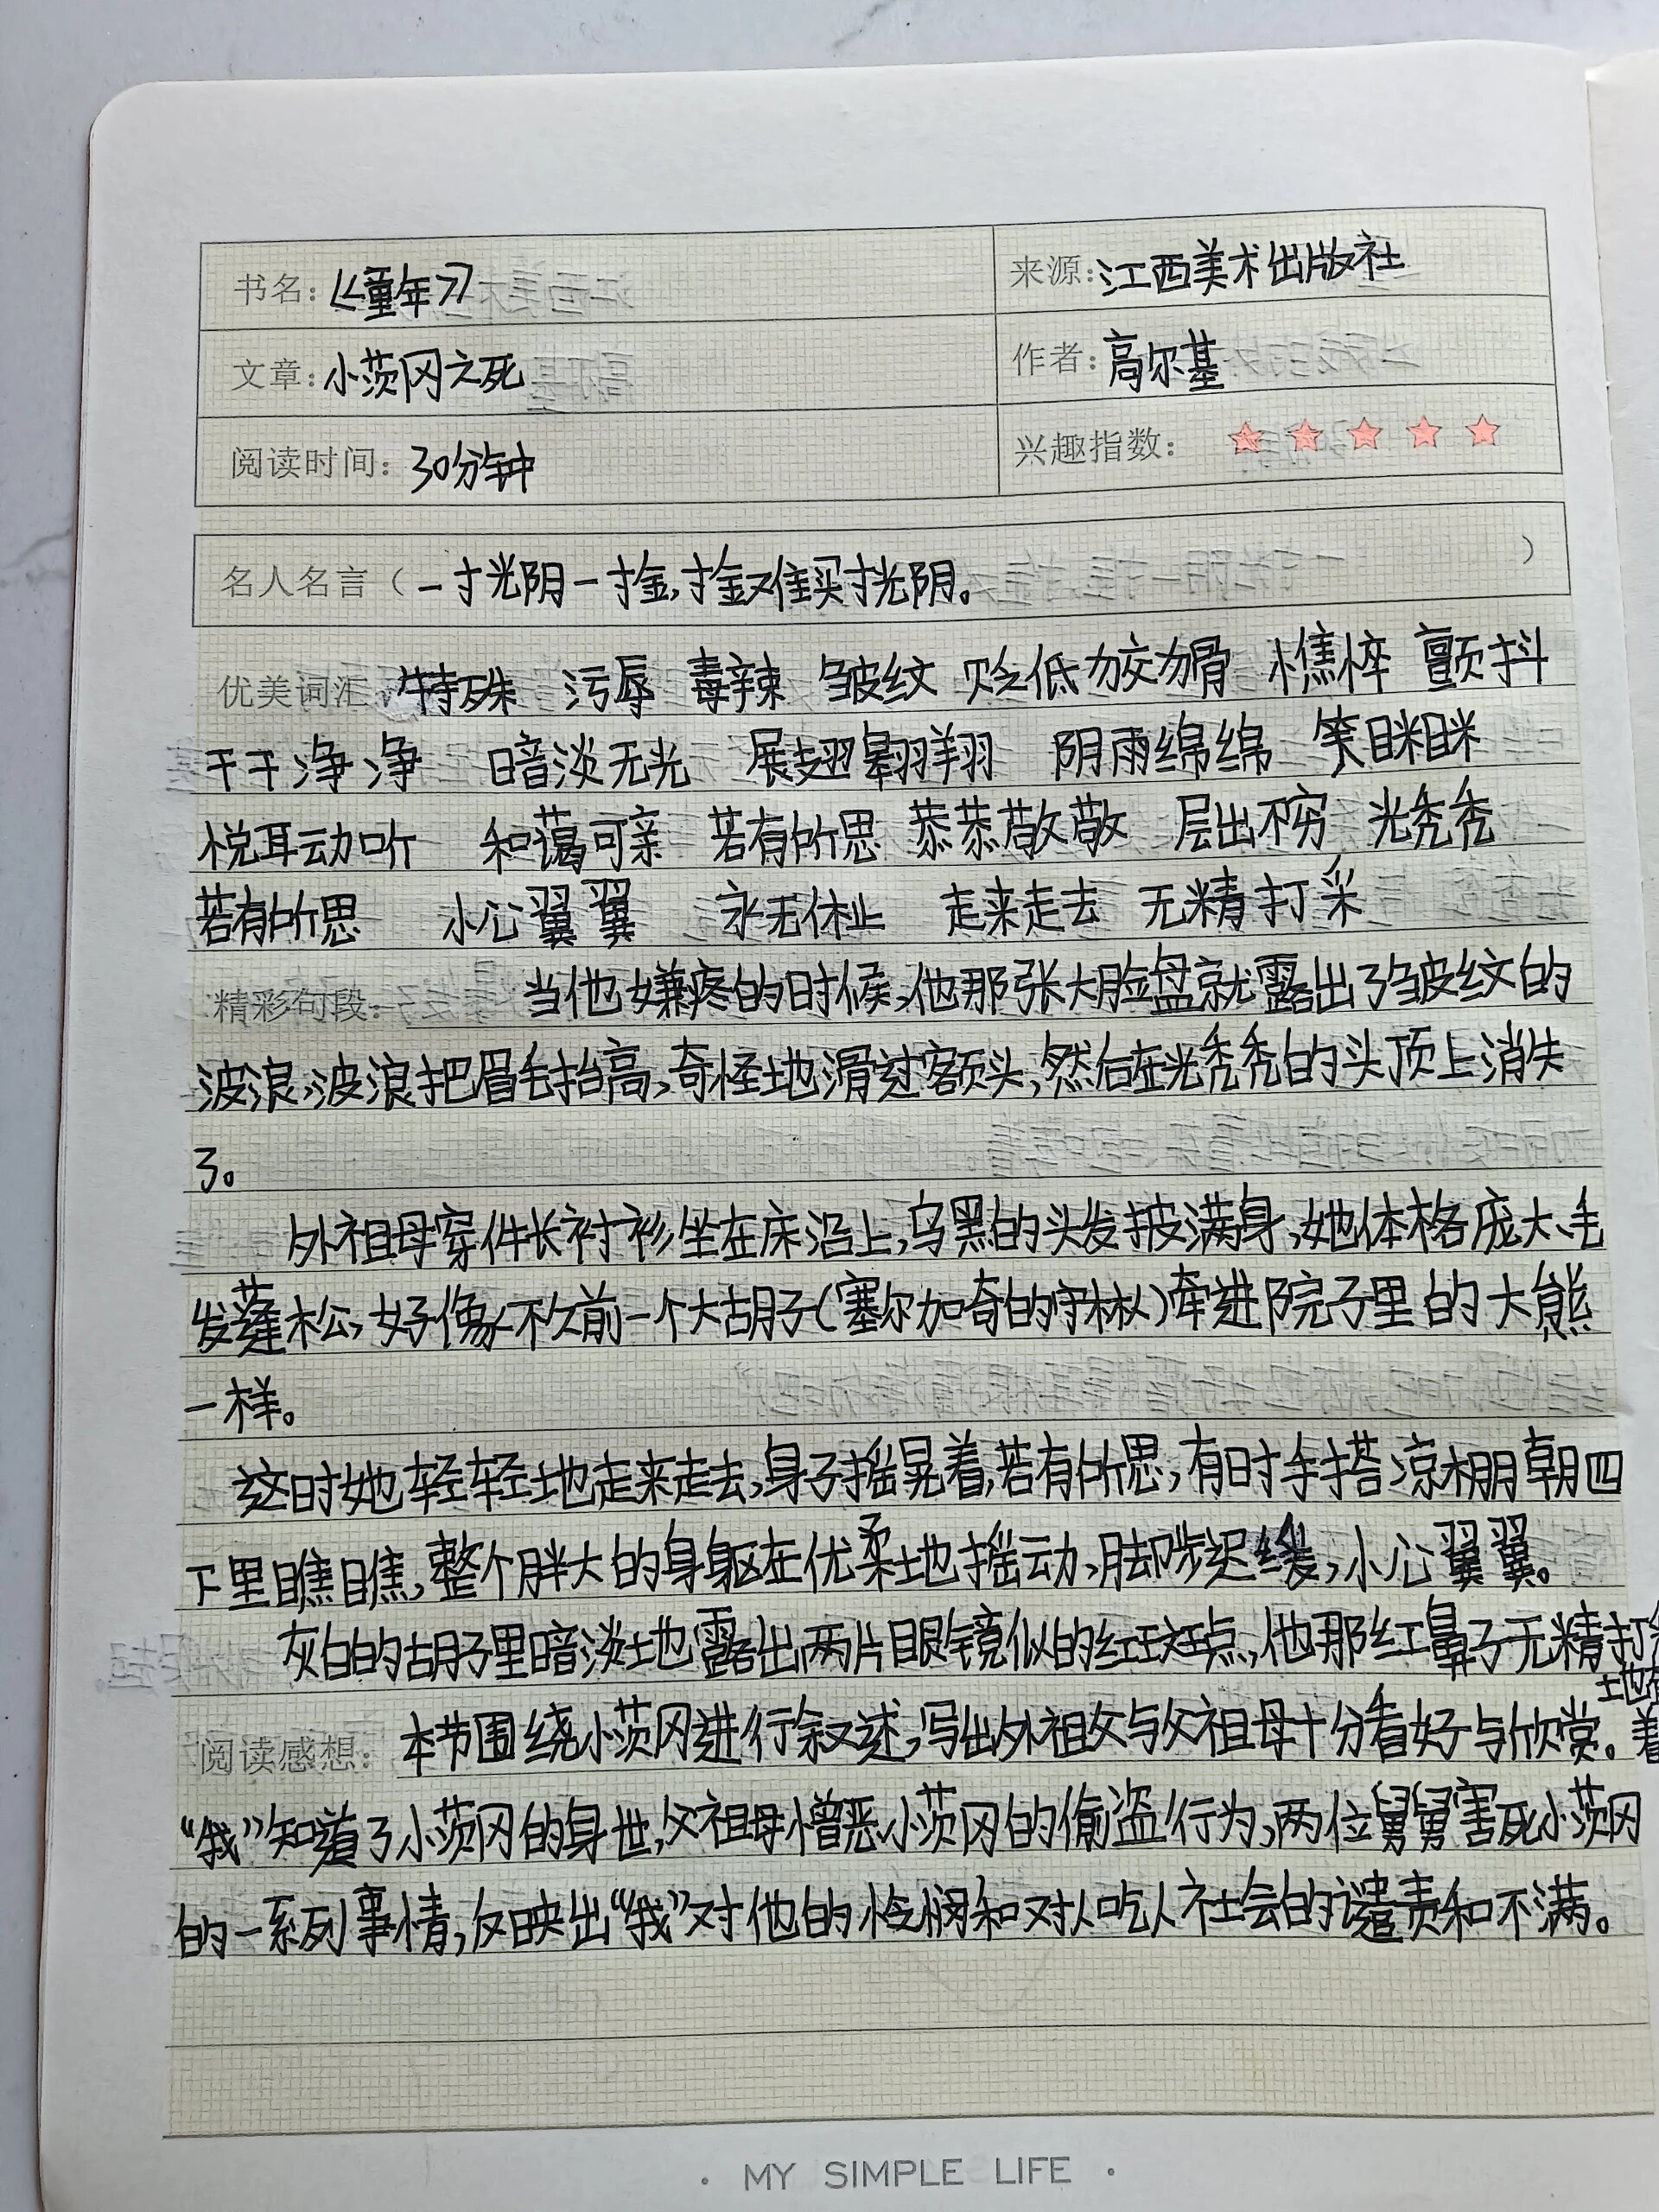 书名：《童年》 来源：江西美术出版社
文章：小茨冈之死 作者：高尔基
阅读时间：30分钟 兴趣指数：
名人名言（一寸光阴一寸金，寸金难买寸光阴。）
优美词汇：特殊 污辱 毒辣 皱纹 贬低 憔悴 颤抖
干干净净 暗淡无光 展翅翱翔 阴雨绵绵 笑眯眯
悦耳动听 和蔼可亲 若有所思 恭恭敬敬 层出不穷 光秃秃
若有所思 小心翼翼 永无休止 走来走去 无精打采
精彩句段：当他嫌疼的时候，他那张大脸盘就露出了皱纹的
波浪，波浪把眉毛抬高，奇怪地滑过额头，然后在光秃秃的头顶上消失
了。
外祖母穿件长衬衫坐在床沿上，乌黑的头发披满身，她体格庞大、毛
发蓬松，好像不久前一个大胡子（塞尔加奇的守林人）牵进院子里的大熊
一样。
这时她轻轻地走来走去，身子摇晃着，若有所思，有时手搭凉棚朝四
下里瞧瞧，整个胖大的身躯在优柔地摇动、脚步迟缓，小心翼翼。
灰白的胡子里暗淡地露出两片眼镜似的红斑点，他那红鼻子无精打
地
阅读感想：本节围绕小茨冈进行叙述，写出外祖父与父祖母十分看好与欣赏。着
“我”知道了小茨冈的身世，父祖母憎恶小茨冈的偷盗行为，两位舅舅害死小茨冈
的一系列事情，反映出“我”对他的怜悯和对人吃人社会的谴责和不满。
· MY SIMPLE LIFE ·